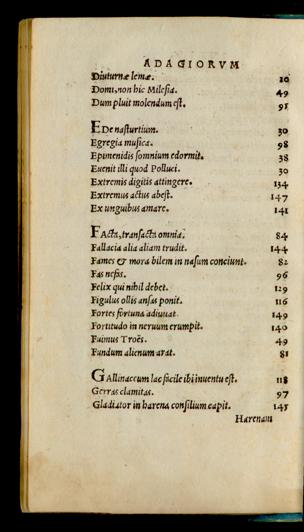 ADAGIORVM
Diuturnæ lemæ. 10
Domi, non hic Milesia. 49
Dum pluit molendum est. 91
EDe nasturtium. 30
Egregia musica. 98
Epimenidis somnium edormit. 38
Euenit illi quod Polluci. 30
Extremis digitis attingere. 134
Extremus actus abest. 147
Ex unguibus amare. 141
FActa, transacta omnia. 84
Fallacia alia aliam trudit. 144
Fames & mora bilem in nasum conciunt. 82
Fas nefas. 96
Felix qui nihil debet. 129
Figulus ollis ansas ponit. 116
Fortes fortuna adiuuat 149
Fortitudo in neruum erumpit. 140
Fuimus Troës. 49
Fundum alienum arat. 81
GAllinaceum lac facile ibi inuentu est. 118
Gerras clamitas. 97
Gladiator in harena consilium capit. 145
Harenam